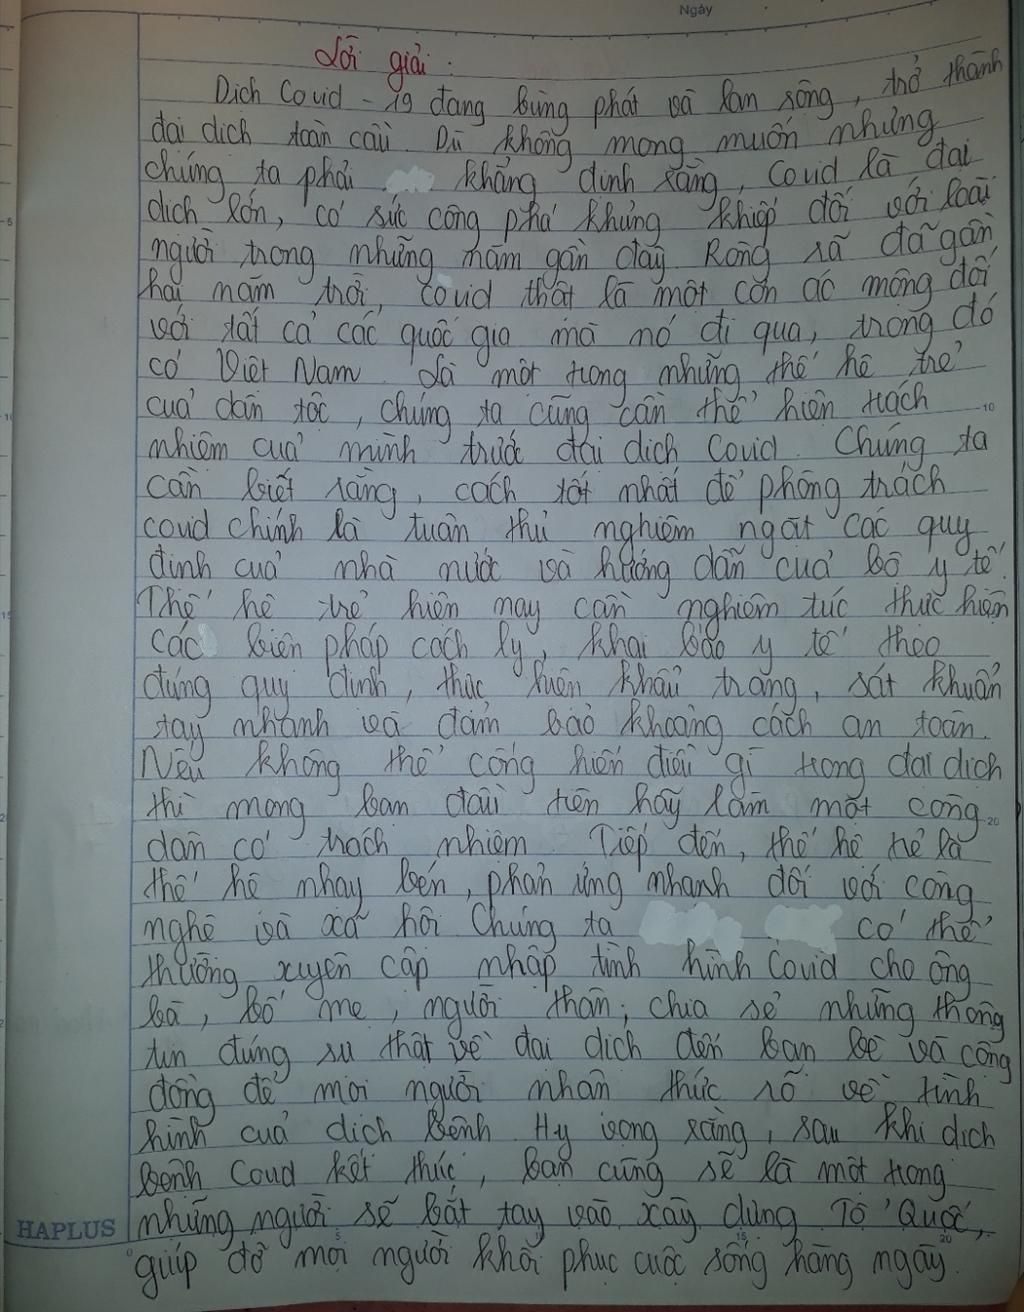 Ngày
Lời giải :
Dịch Covid - 19 đang bùng phát và lan rộng, trở thành
đại dịch toàn cầu. Dù không mong muốn nhưng
chúng ta phải khẳng định rằng, Covid là đại
dịch lớn, có sức công phá khủng khiếp đối với loài
người trong những năm gần đây. Ròng rã đã gần
hai năm trời, covid thật là một cơn ác mộng đối
với tất cả các quốc gia mà nó đi qua, trong đó
có Việt Nam. Là một trong những thế hệ trẻ
của dân tộc, chúng ta cũng cần thể hiện trách
nhiệm của mình trước đại dịch Covid. Chúng ta
cần biết rằng, cách tốt nhất để phòng trách
covid chính là tuân thủ nghiêm ngặt các quy
định của nhà nước và hướng dẫn của bộ y tế.
Thế hệ trẻ hiện nay cần nghiêm túc thực hiện
các biện pháp cách ly, khai báo y tế theo
đúng quy định, thực hiện khẩu trang, sát khuẩn
tay nhanh và đảm bảo khoảng cách an toàn.
Nếu không thể cống hiến điều gì trong đại dịch
thì mong bạn đầu tiên hãy làm một công
dân có trách nhiệm. Tiếp đến, thế hệ trẻ là
thế hệ nhạy bén, phản ứng nhanh đối với công
nghệ và xã hội. Chúng ta có thể
thường xuyên cập nhập tình hình Covid cho ông
bà, bố mẹ, người thân; chia sẻ những thông
tin đúng sự thật về đại dịch đến bạn bè và cộng
đồng để mọi người nhận thức rõ về tình
hình của dịch bệnh. Hy vọng rằng, sau khi dịch
bệnh Covid kết thúc, bạn cũng sẽ là một trong
những người sẽ bắt tay vào xây dựng Tổ Quốc,
giúp đỡ mọi người khôi phục cuộc sống hằng ngày.
HAPLUS